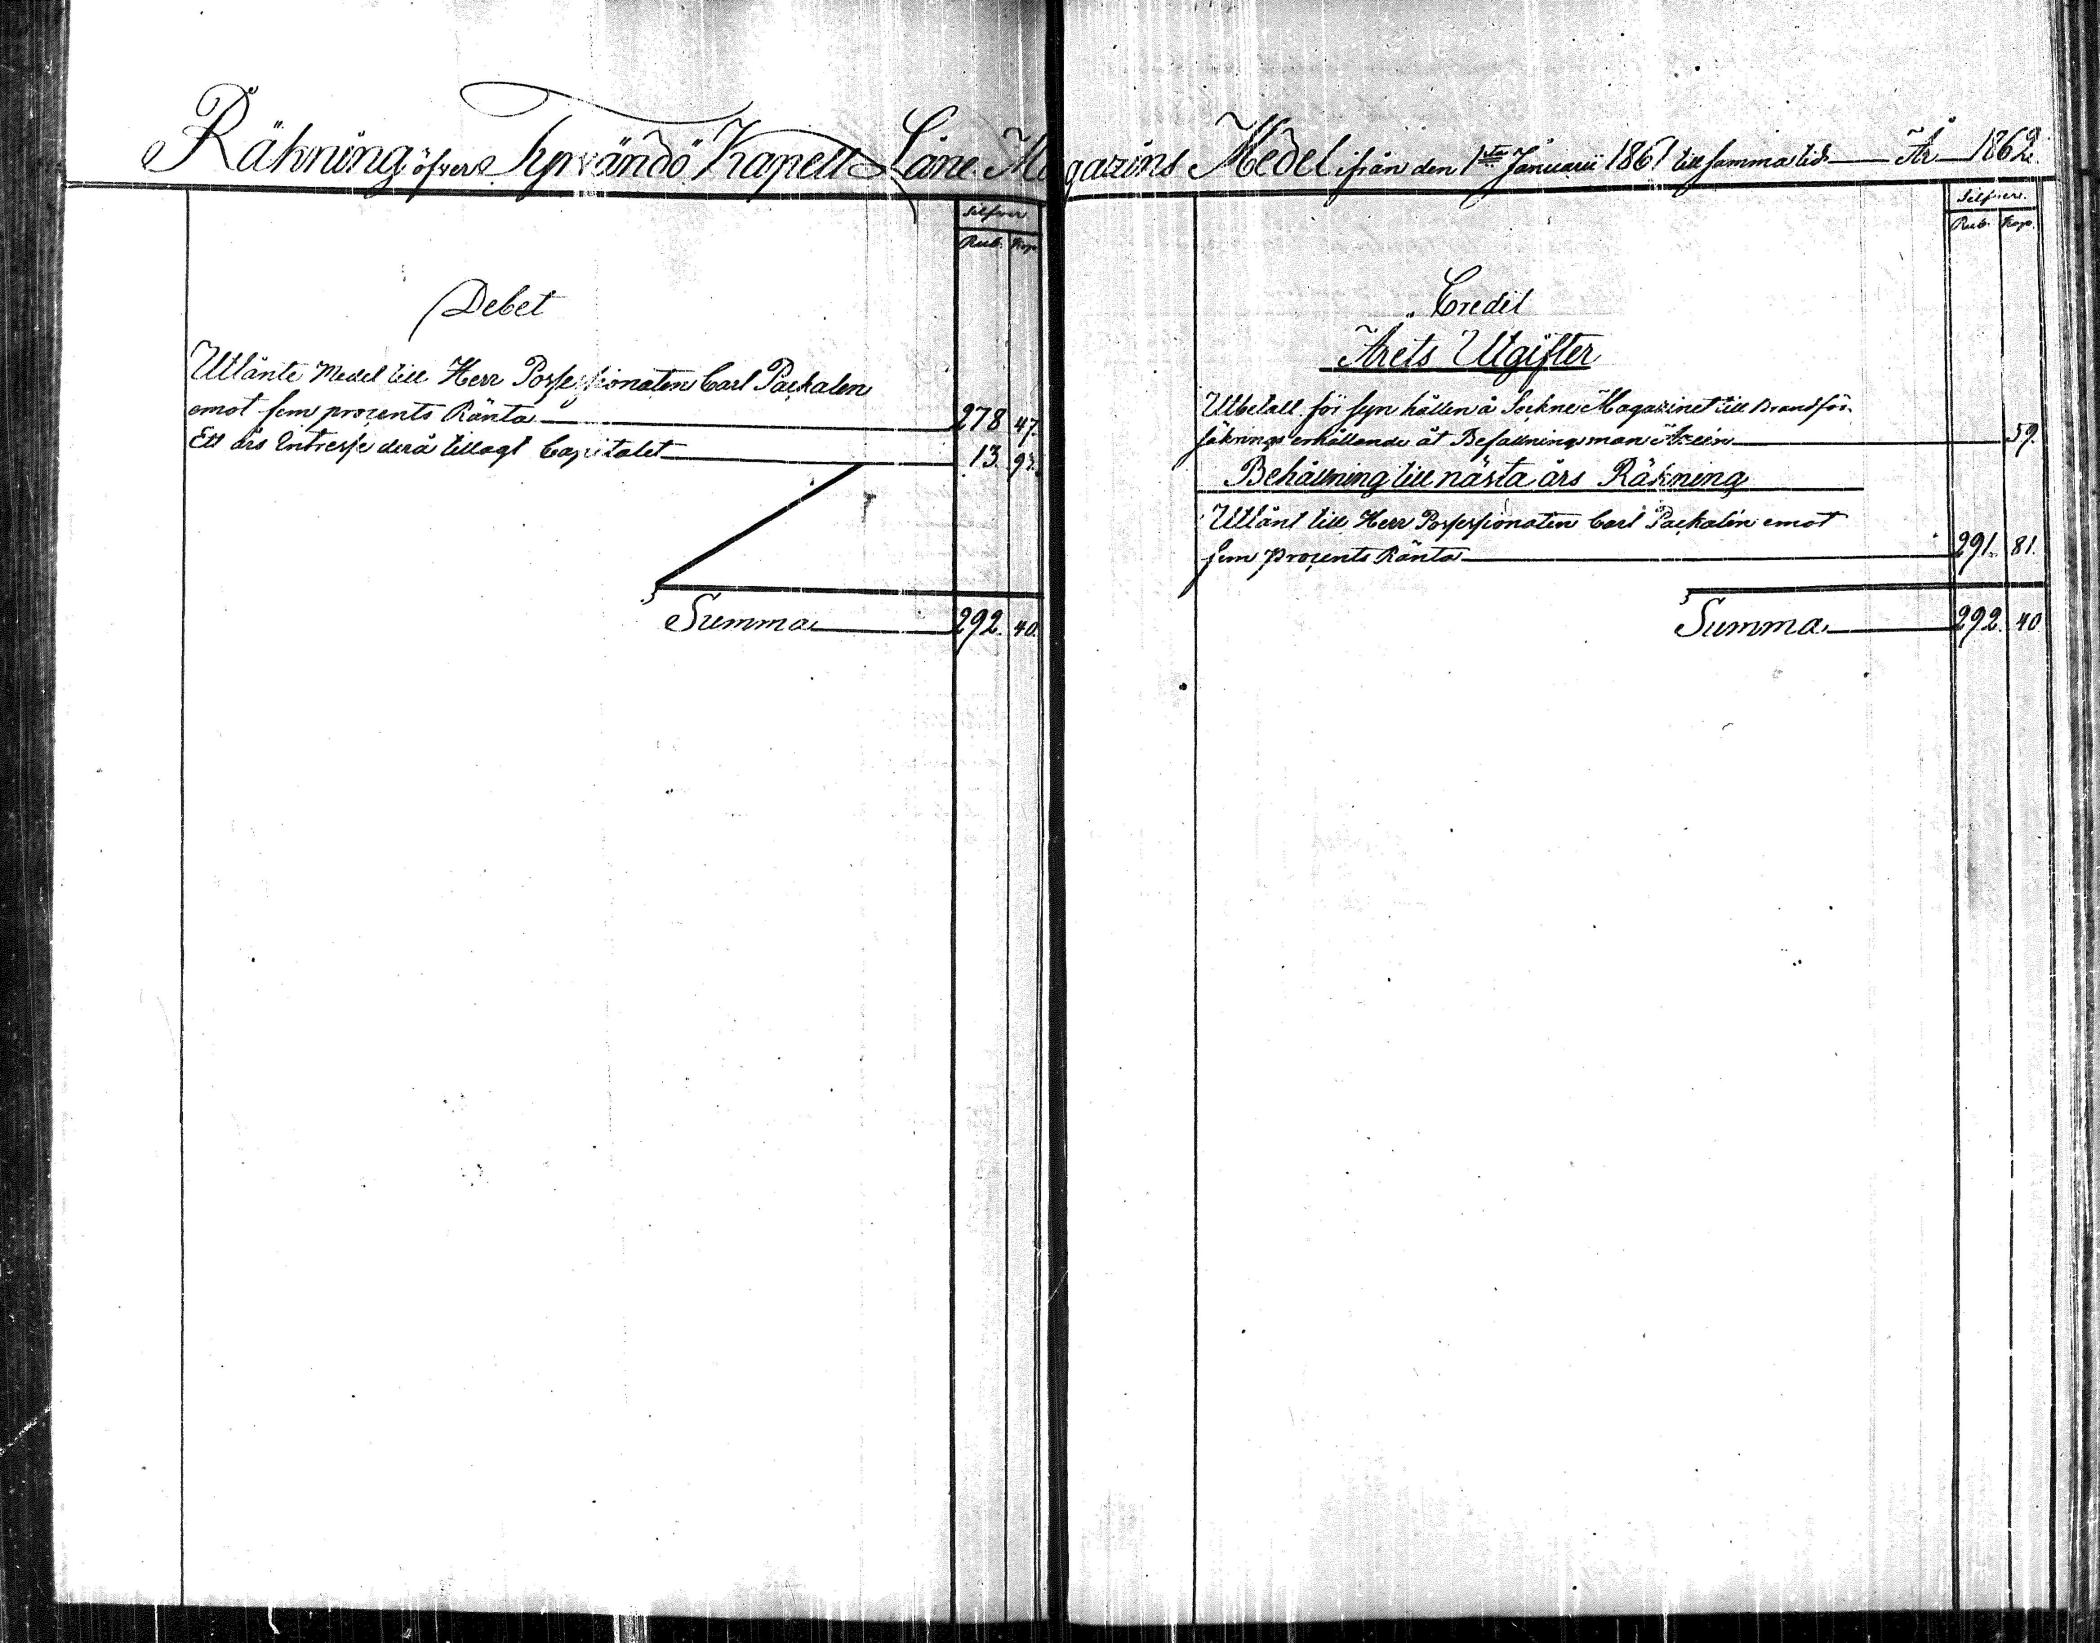 Räkning öfver Tyrvändö Kapell Låne Magazins Medel ifrån den 1sta Januarii 1861 till samma tid År 1862.
Silfver
Rub. Kop.
Debet
Utlånte Medel till Herr Possessionaten Carl Packalen
emot fem procents Ränta 278 47.
Ett års Intresse derå tillagt Capitalet 13. 93.
Summa 292. 40.
Silfver.
Rub. Kop.
Credit
Årets Utgifter
Utbetalt för syn hållen å Sockne Magazinet till Brandför-
säkrings erhållande åt Befallningsman 59.
Behållning till nästa års Räkning
Utlånt till Herr Possessionaten Carl Packalén emot
fem procents Ränta 291. 81.
Summa 292. 40